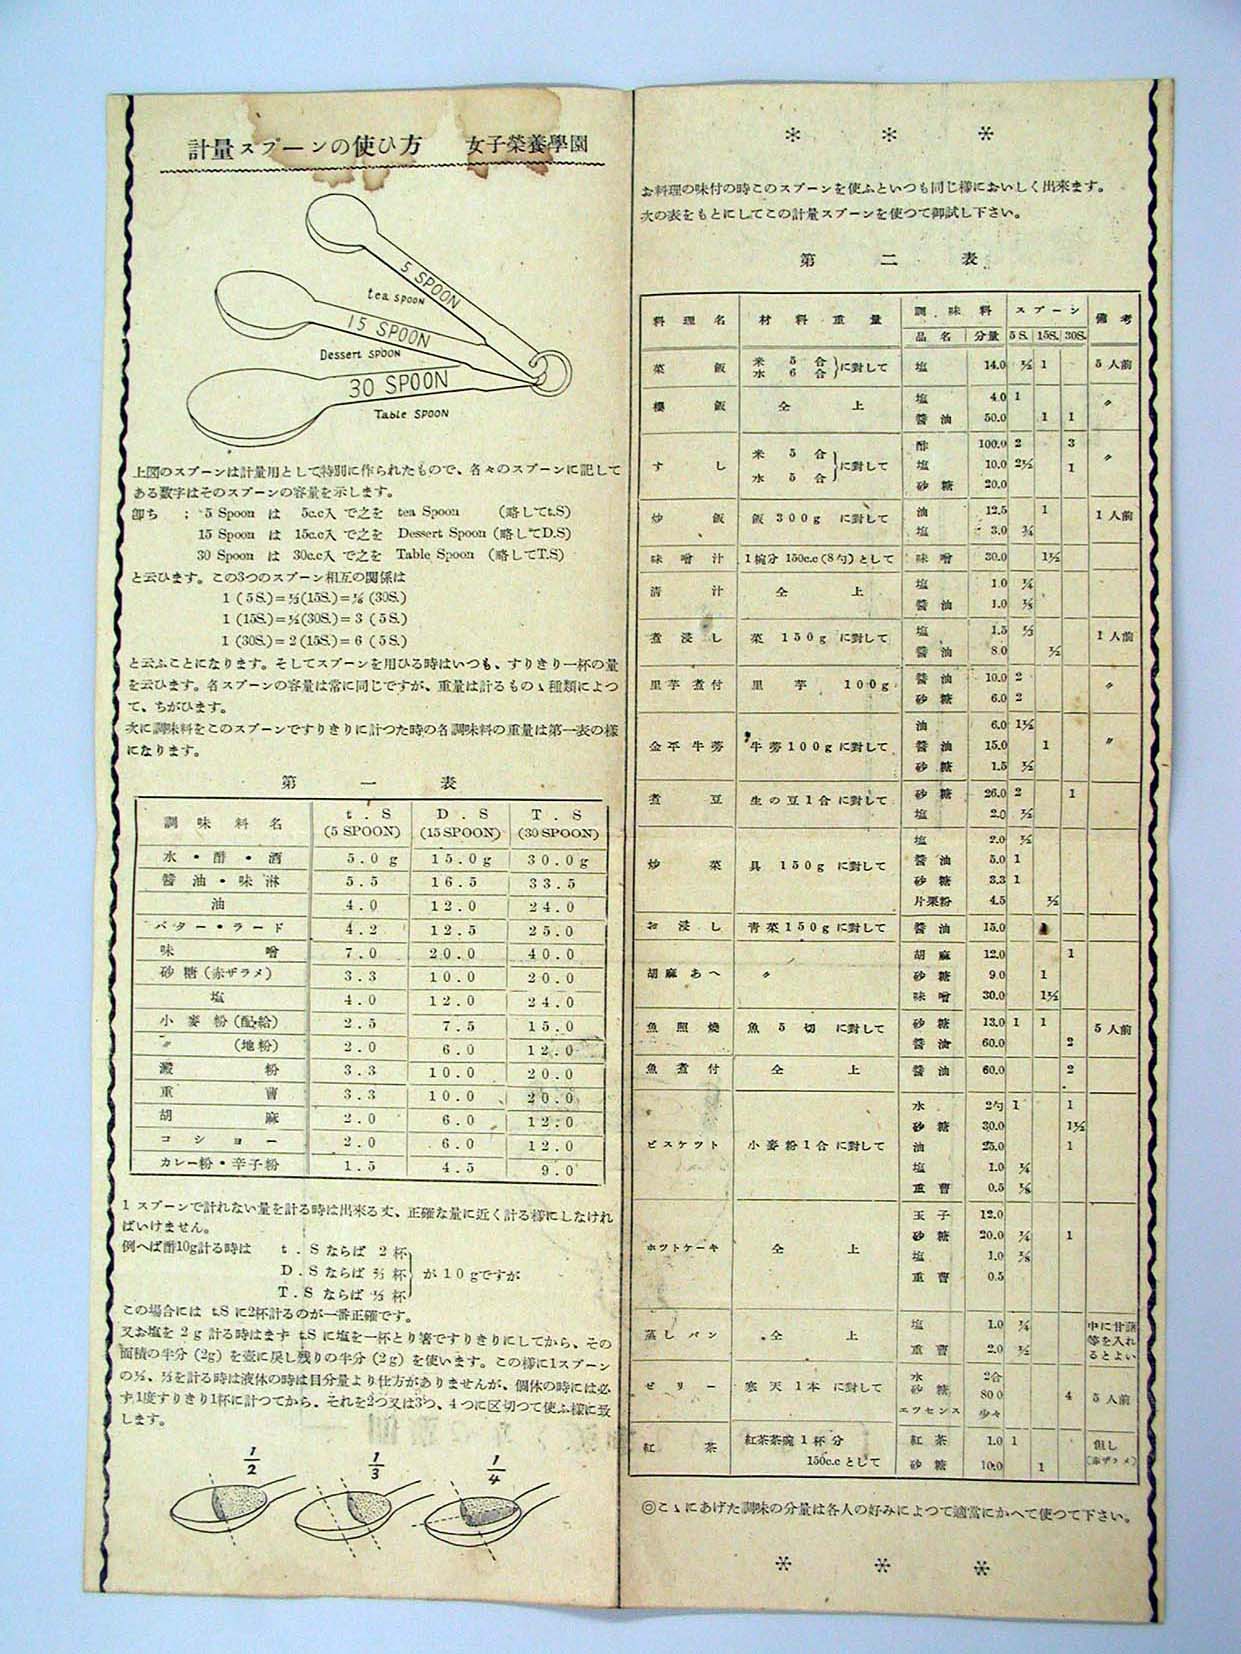 計量スプーンの使ひ方 女子榮養學園
5 SPOON
tea SPOON
15 SPOON
Dessert SPOON
30 SPOON
Table SPOON
上図のスプーンは計量用として特別に作られたもので、各々のスプーンに記して
ある数字はそのスプーンの容量を示します。
卽ち ; 5 Spoon は 5c.c入 で之を tea Spoon (略してt.S)
15 Spoon は 15c.c入 で之を Dessert Spoon (略してD.S)
30 Spoon は 30c.c入 で之を Table Spoon (略してT.S)
と云ひます。この3つのスプーン相互の関係は
1 (5S.)=⅓(15S.)=⅙(30S.)
1 (15S.)=½(30S.)=3 (5S.)
1 (30S.)=2(15S.)=6 (5S.)
と云ふことになります。そしてスプーンを用ひる時はいつも、すりきり一杯の量
を云ひます。各スプーンの容量は常に同じですが、重量は計るものゝ種類によつ
て、ちがひます。
次に調味料をこのスプーンですりきりに計つた時の各調味料の重量は第一表の様
になります。
第一表
調味料名 t.S (5 SPOON) D.S (15 SPOON) T.S (30 SPOON)
水・酢・酒 5.0g 15.0g 30.0g
醬油・味淋 5.5 16.5 33.5
油 4.0 12.0 24.0
バター・ラード 4.2 12.5 25.0
味噌 7.0 20.0 40.0
砂糖(赤ザラメ) 3.3 10.0 20.0
塩 4.0 12.0 24.0
小麥粉(配給) 2.5 7.5 15.0
〃 (地粉) 2.0 6.0 12.0
澱粉 3.3 10.0 20.0
重曹 3.3 10.0 20.0
胡麻 2.0 6.0 12.0
コショー 2.0 6.0 12.0
カレー粉・辛子粉 1.5 4.5 9.0
1 スプーンで計れない量を計る時は出來る丈、正確な量に近く計る様にしなけれ
ばいけません。
例へば酢10g計る時は t.Sならば 2 杯
D.Sならば ⅔ 杯 が10gですが
T.Sならば ⅓ 杯
この場合には t.Sに2杯計るのが一番正確です。
又お塩を2g計る時はまず t.Sに塩を一杯とり箸ですりきりにしてから、その
面積の半分(2g)を壺に戻し残りの半分(2g)を使います。この様に1スプーン
の½、⅓を計る時は液体の時は目分量より仕方がありませんが、個体の時には必
ず1度すりきり1杯に計つてから、それを2つ又は3つ、4つに区切つて使ふ様に致
します。
1/2 1/3 1/4
* * *
お料理の味付の時このスプーンを使ふといつも同じ様においしく出來ます。
次の表をもとにしてこの計量スプーンを使つて御試し下さい。
第二表
料理名 材料重量 調味料 スプーン 備考
品名 分量 5S. 15S. 30S.
菜飯 米5合 水6合 }に對して 塩 14.0 ½ 1 5人前
櫻飯 仝上 塩 4.0 1 〃
醬油 50.0 1 1
すし 米5合 水5合 }に對して 酢 100.0 2 3 〃
塩 10.0 2½
砂糖 20.0 1
炒飯 飯300gに對して 油 12.5 1 1人前
塩 3.0 ¾
味噌汁 1椀分150c.c(8勺)として 味噌 30.0 1½
清汁 仝上 塩 1.0 ¼
醬油 1.0
煮浸し 菜150gに對して 塩 1.5 1人前
醬油 8.0 ½
里芋煮付 里芋100g 醬油 10.0 2 〃
砂糖 6.0 2
金平牛蒡 牛蒡100gに對して 油 6.0 1½ 〃
醬油 15.0 1
砂糖 1.5 ½
煮豆 生の豆1合に對して 砂糖 26.0 2 1
塩 2.0 ½
炒菜 具150gに對して 塩 2.0 ½
醬油 5.0 1
砂糖 3.3 1
片栗粉 4.5 ½
お浸し 青菜150gに對して 醬油 15.0
胡麻あへ 〃 胡麻 12.0 1
砂糖 9.0 1
味噌 30.0 1½
魚照燒 魚5切に對して 砂糖 13.0 1 1 5人前
醬油 60.0 2
魚煮付 仝上 醬油 60.0 2
ビスケツト 小麥粉1合に對して 水 2勺 1 1
砂糖 30.0 1½
油 25.0 1
塩 1.0 ¼
重曹 0.5 ⅛
ホツトケーキ 仝上 玉子 12.0
砂糖 20.0 ¼ 1
塩 1.0 ⅛
重曹 0.5
蒸しパン 仝上 塩 1.0 ¼ 中に甘藷
等を入れ
るとよい
重曹 2.0 ½
ゼリー 寒天1本に對して 水 2合 5人前
砂糖 80.0 4
エツセンス 少々
紅茶 紅茶茶碗1杯分 150c.cとして 紅茶 1.0 1 但し
砂糖 10.0 1 (赤ザラメ)
◎こゝにあげた調味の分量は各人の好みによつて適當にかへて使つて下さい。
* * *